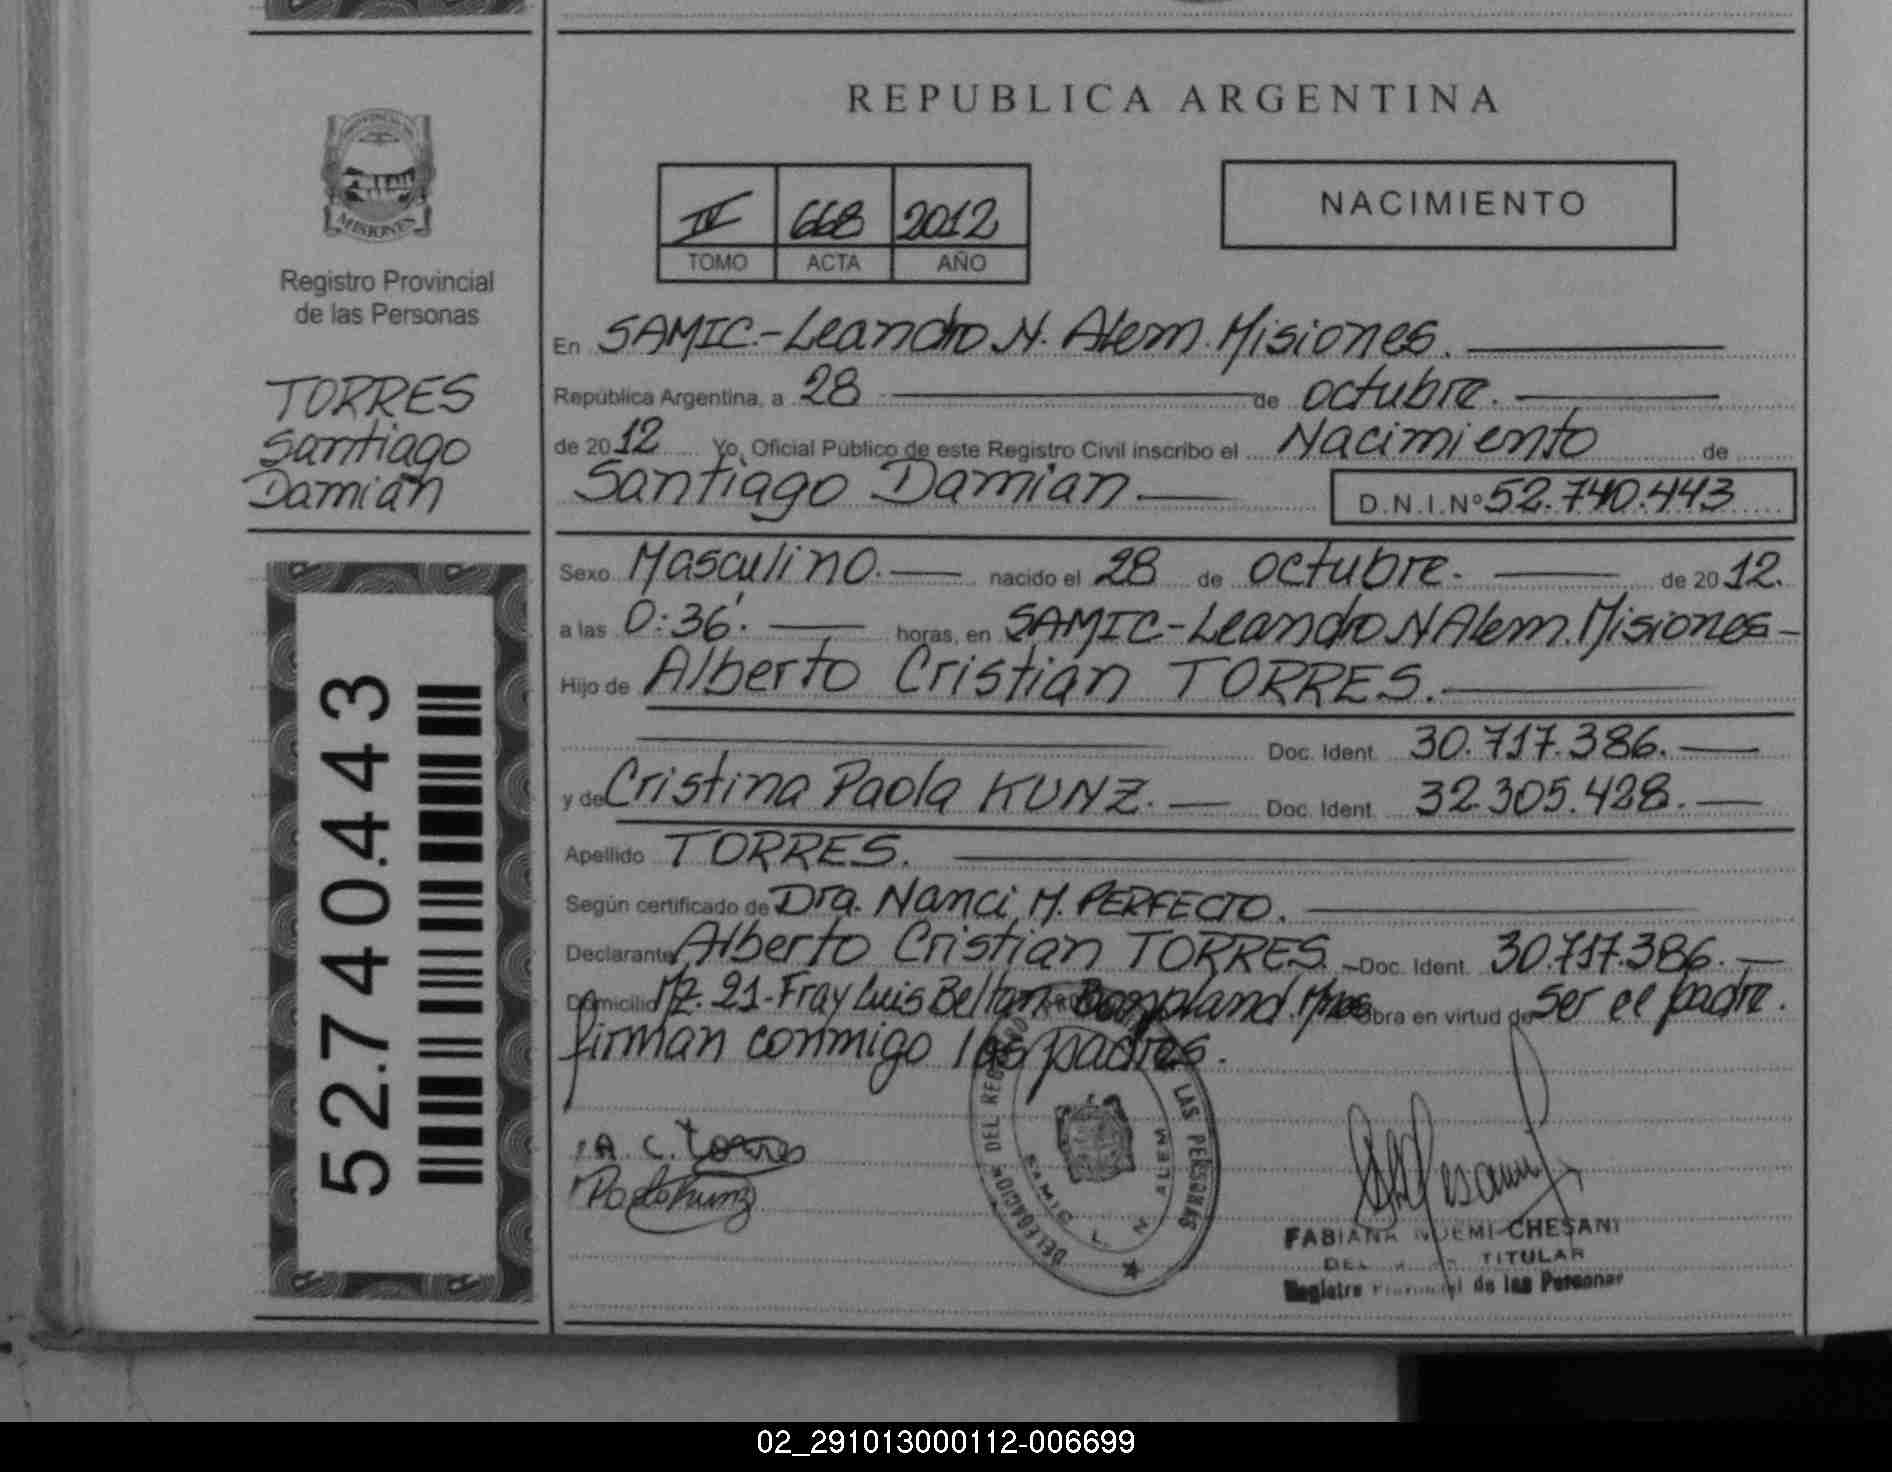 PROVINCIA DE
MISIONES
Registro Provincial
de las Personas
TORRES
Santiago
Damian
52.740.443
REPUBLICA ARGENTINA
IV 668 2012
TOMO ACTA AÑO
NACIMIENTO
En SAMIC.-Leandro N. Alem. Misiones.
República Argentina, a 28 de octubre.
de 2012 Yo, Oficial Público de este Registro Civil inscribo el Nacimiento de
Santiago Damian D.N.I.Nº 52.740.443
Sexo Masculino. nacido el 28 de octubre. de 2012.
a las 0:36'. horas, en SAMIC.-Leandro N Alem. Misiones-
Hijo de Alberto Cristian TORRES.
Doc. Ident. 30.717.386.
y de Cristina Paola KUNZ. Doc. Ident. 32.305.428.
Apellido TORRES.
Según certificado de Dra. Nanci M. PERFECTO.
Declarante Alberto Cristian TORRES. Doc. Ident. 30.717.386.
Domicilio Mz. 21-Fray Luis Beltran Bonpland. Mnes Obra en virtud de ser el padre.
firman conmigo los padres.
A. C. torres
Paola kunz
DELEGACION DEL REGISTRO LAS PERSONAS
SAMIC L. N. ALEM
FABIANA NOEMI CHESANI
TITULAR
Registro Provincial de las Personas
02_291013000112-006699